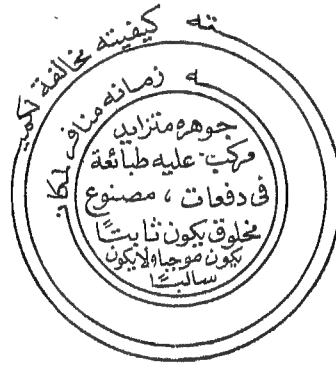 كيفيته مخالفة لكميته
زمانه مناف لمكانه
جوهره متزايد
مركب عليه طبائعة
فى دفعات ، مصنوع
مخلوق يكون ثابتًا
يكون موجبا ولا يكون
سالبًا